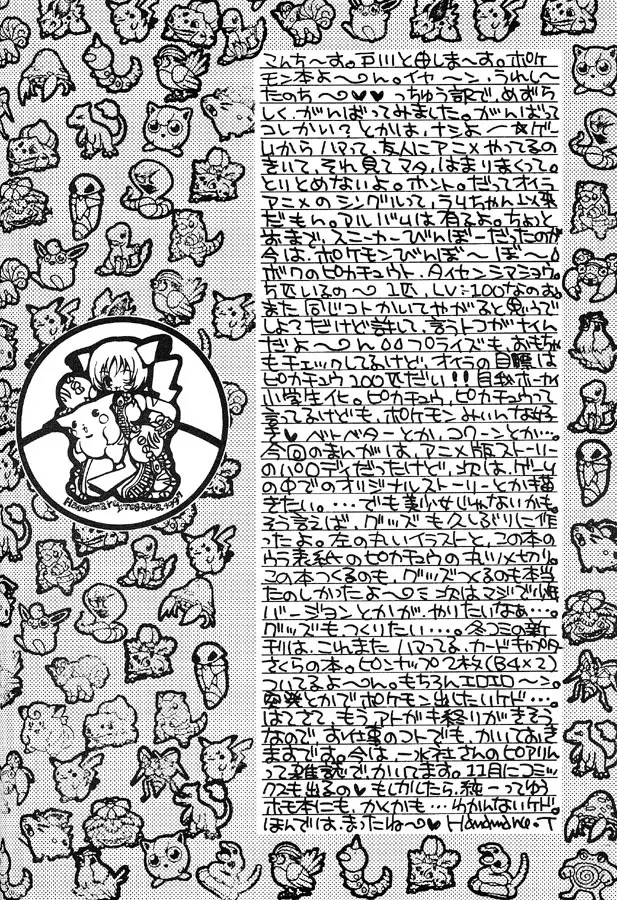 こんち〜す。戸川と申しま〜す。ポケ
モン本よ〜ん。イヤ〜ン、うれし〜
たのち〜♥♥っちゅう訳で、めずら
しく、がんばってみました。がんばって
コレかい?とかは、ナシよ〜☆ゲー
ムからハマって、友人にアニメやってるの
きいて、それ見てマタ、はまりまくって。
とりとめないよ。ホント。だってオイラ
アニメのシングルって、うる
だもん。アルバムは有るよ。ちょっと
前まで、スニーカーびんぼーだったのが
今は、ポケモンびんぼ〜ぼ〜
ボクのピカチュウト、タイセンシマショウ。
5匹いるの〜1匹、LV:100なのお。
また同じコトかいてやがると思うで
しょ?だけど許して、言うトコがナイん
だよ〜んプライズも、おもちゃ
もチェックしてるけど、オイラの目標は
ピカチュウ100匹だい!!
小学生化。ピカチュウ、ピカチュウって
言ってるけども、ポケモンみぃんな好
き♥ベトベターとか、コクーンとか…。
今回のまんがは、アニメ版ストーリー
のパロディだったけど、次は、ゲーム
の中でのオリジナルストーリーとか描
きたい。…でも美少女じゃないかも。
そう言えば、グッズも久しぶりに作
ったよ。左の丸いイラストと、この本の
ウラ表紙のピカチュウの丸いメセカリ。
この本つくるのも、グッズつくるのも本当
たのしかったよ〜ミ次はマジで
バージョンとかが、やりたいなぁ…。
グッズもつくりたい…。冬コミの新
刊は、これまたハマってる、カードキャプタ
さくらの本。ピンナップ2枚(B4×2)
ついてるよ〜ん。もちろんエロエロ〜ン。
突発とかでポケモン出したいケド…。
はてさて、もうアトガキ終りがきそう
なので、お仕事のコトでも、かいておき
ますです。今は、一水社さんのピアリィ
って雑誌でかいてます。11月にコミッ
クスも出るの♥もしかしたら、純一ってゆう
ホモ本にも、かくかも…わかんないケド。
ほんでは、まったね〜♥ Hanamaru.T
Hanamaru.Togawa.1997